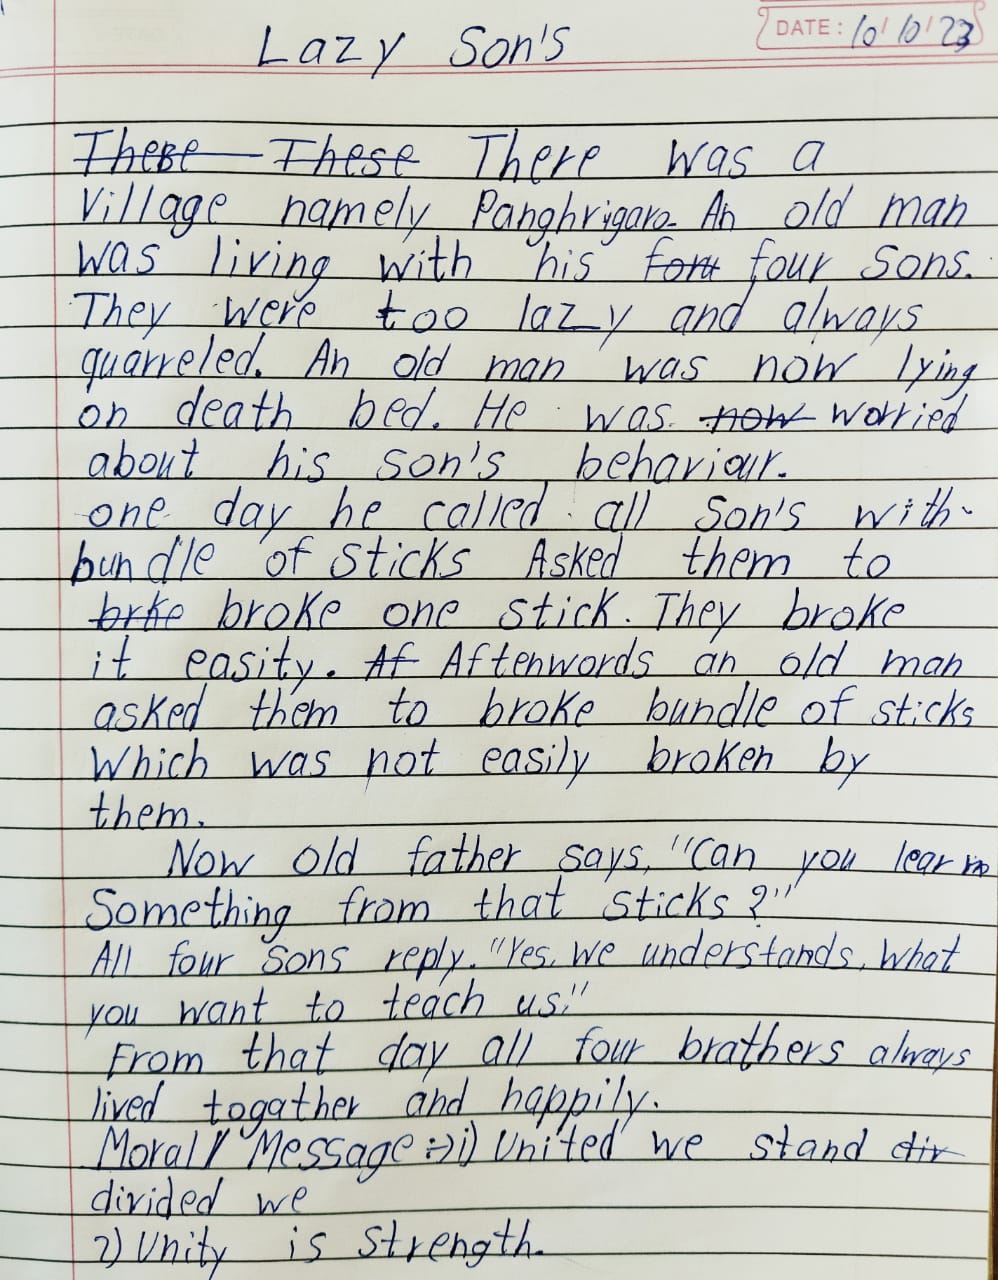 Lazy Son's
DATE: 10/10/23
These These There was a
Village namely Panghrigara. An old man
was living with his foru four Sons.
They were too lazy and always
quarreled. An old man was now lying
on death bed. He was now worried
about his son's behaviour.
one day he called all Son's with
bundle of sticks Asked them to
brke broke one stick. They broke
it easity. Af Aftenwords an old man
asked them to broke bundle of sticks
Which was not easily broken by
them.
Now old father says, "Can you learn
Something from that sticks ?"
All four Sons reply. "Yes, we understands, What
you want to teach us."
From that day all four brathers always
lived togather and happily.
Moral / Message :⇒ i) United we stand div
divided we
2) Unity is strength.